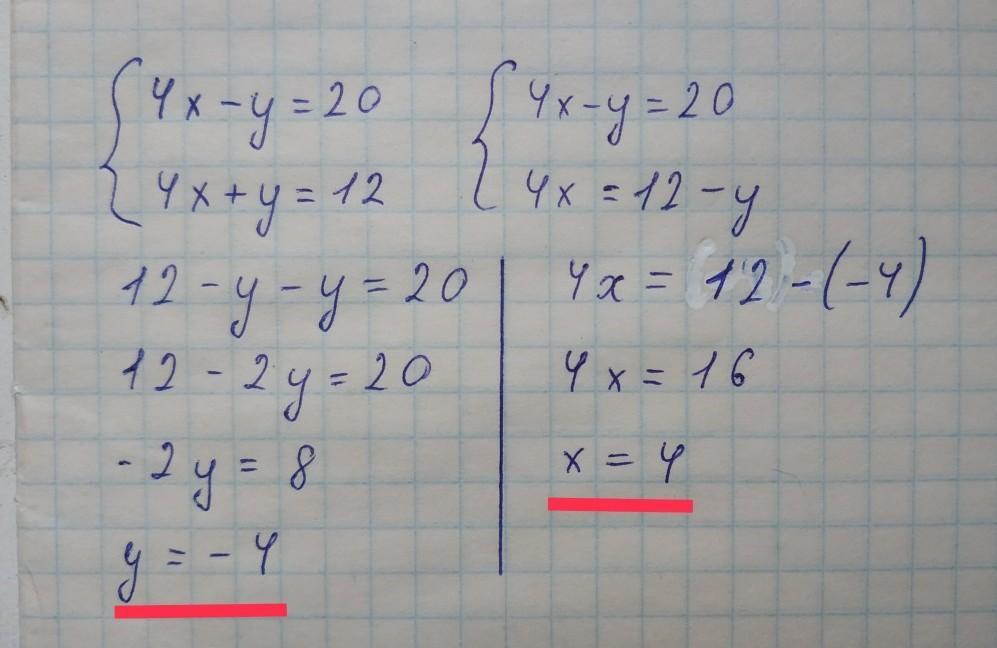 4x - y = 20
4x + y = 12
4x - y = 20
4x = 12 - y
12 - y - y = 20
12 - 2y = 20
- 2y = 8
y = - 4
4x = 12 - (-4)
4x = 16
x = 4